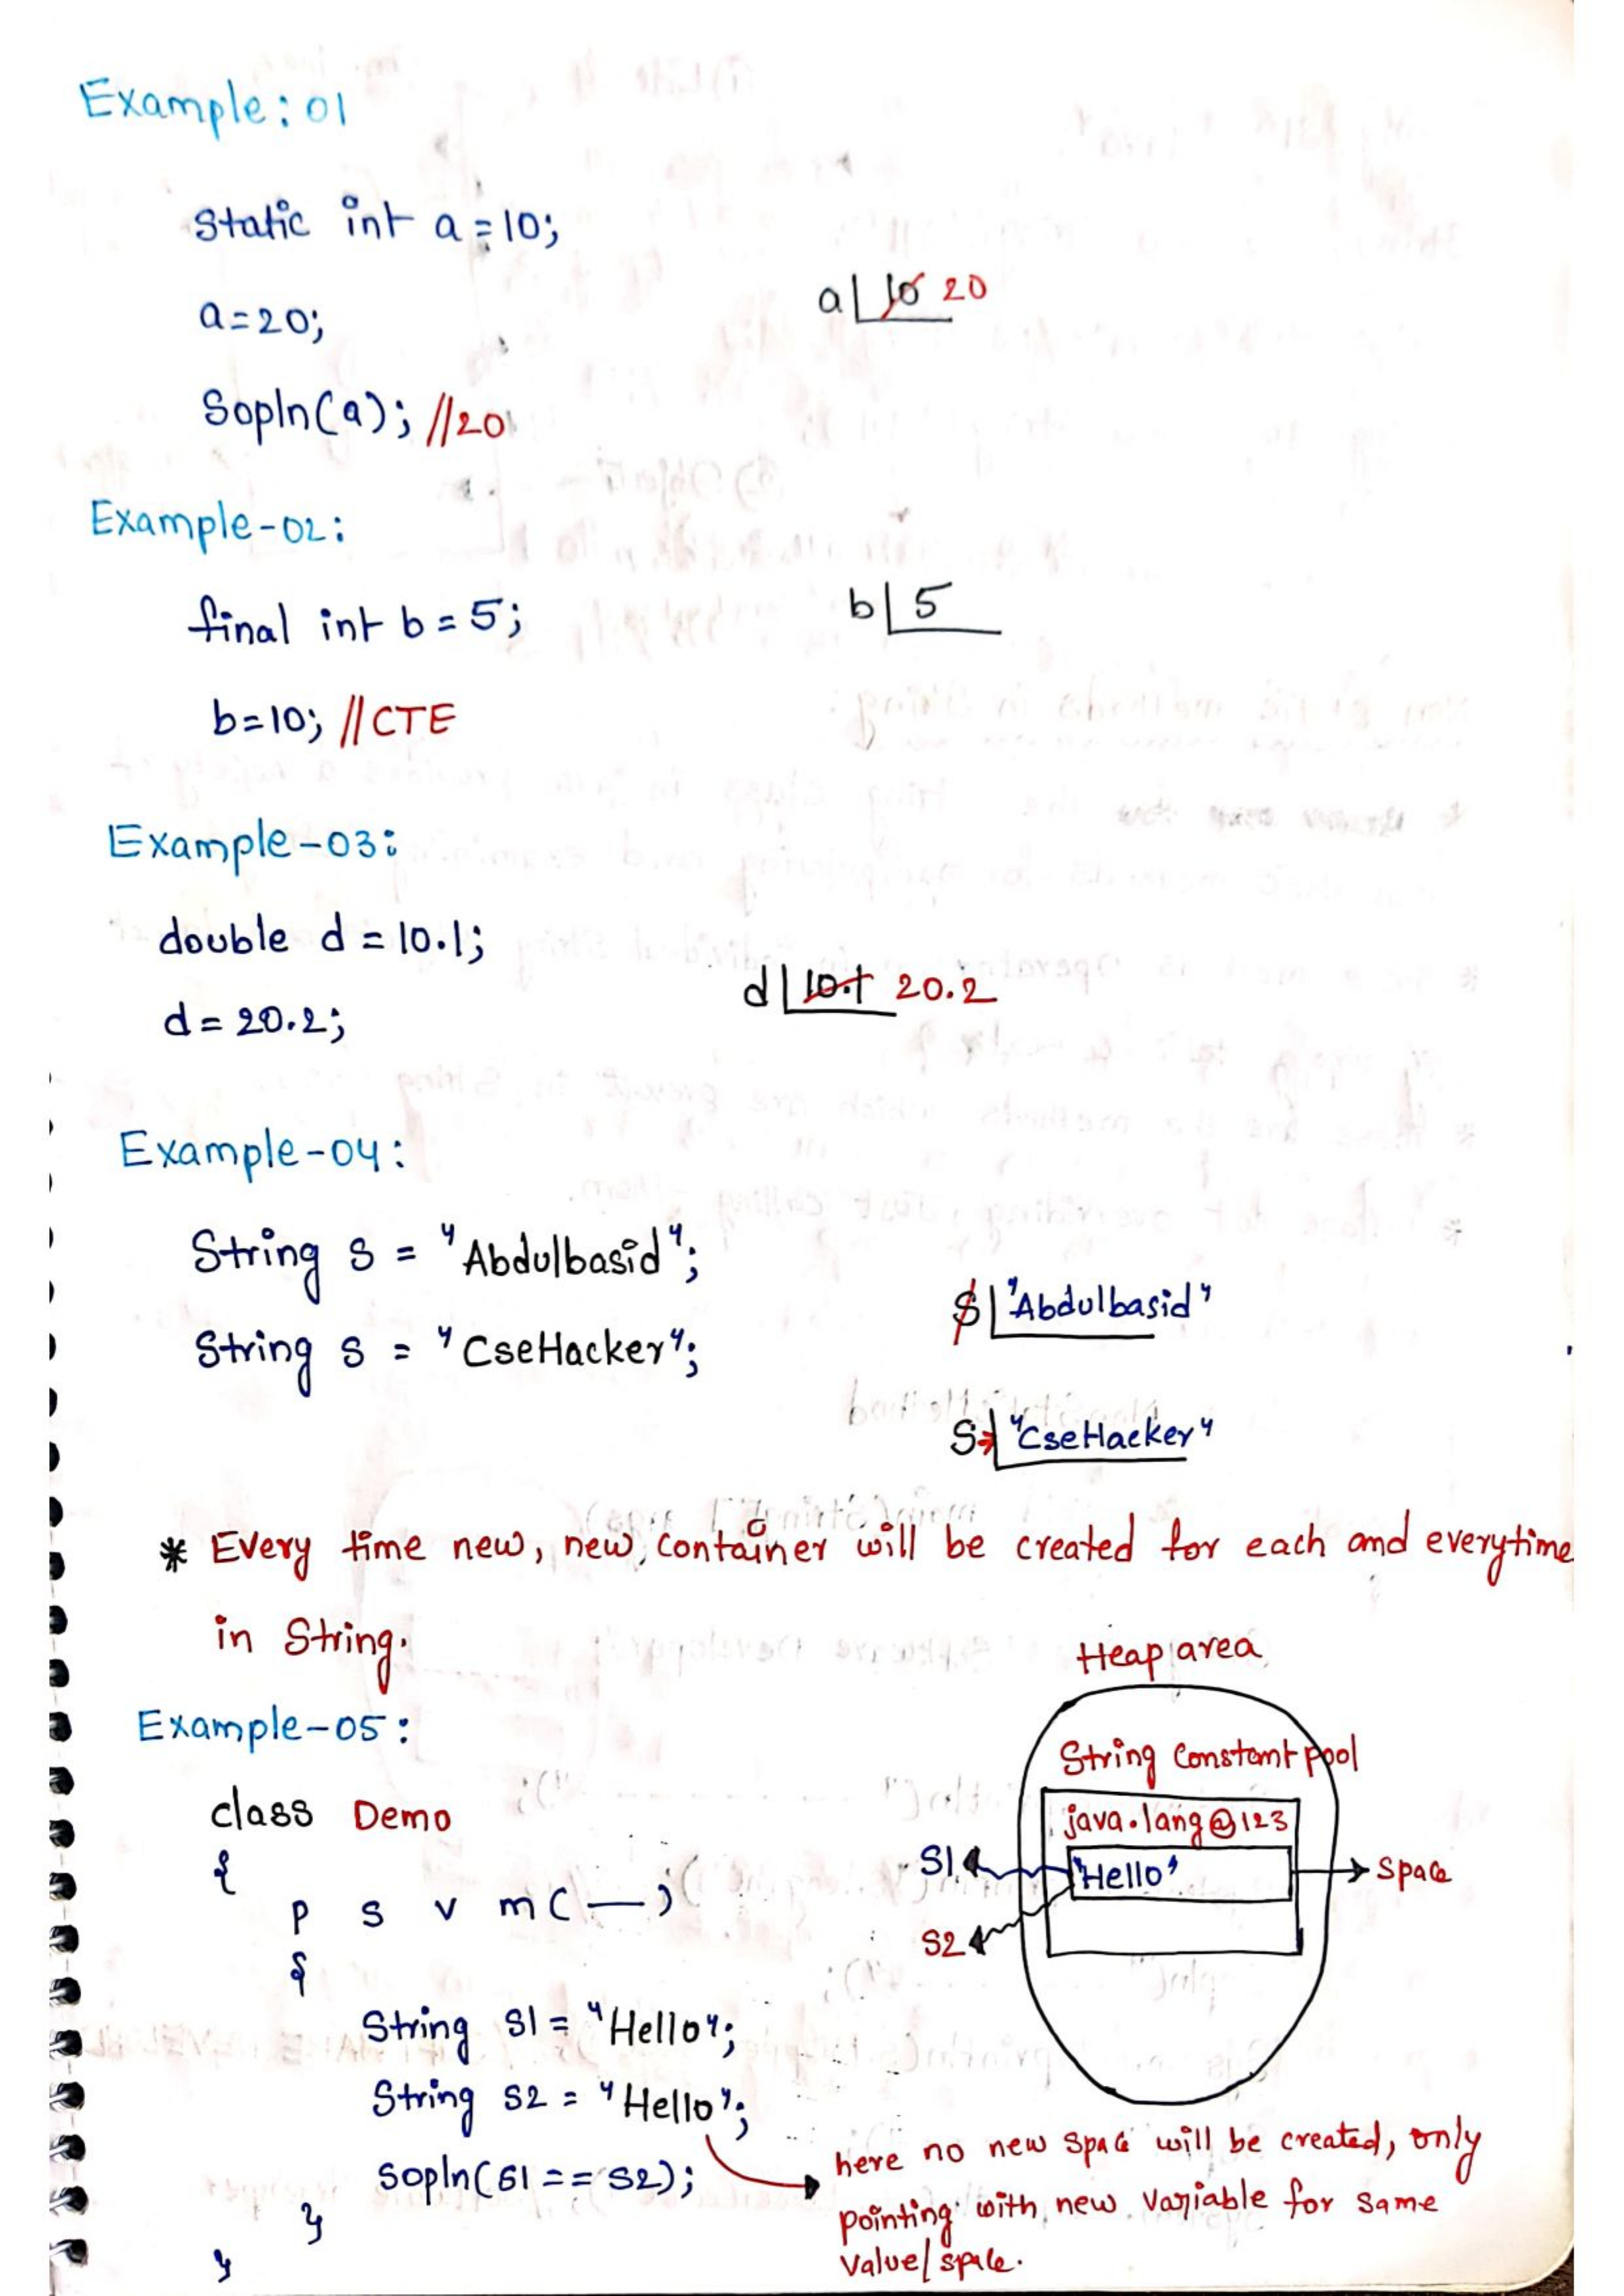 Example: 01
Static int a = 10;
a = 20;
a 10 20
Sopln(a); //20
Example-02:
final int b = 5;
b 5
b=10; //CTE
Example-03:
double d = 10.1;
d = 20.2;
d 10.1 20.2
Example-04:
String S = "Abdulbasid";
String S = "CseHacker";
S "Abdulbasid"
S "CseHacker"
* Every time new, new, container will be created for each and everytime
in String.
Example-05:
class Demo
{
P S V m( — )
{
String S1 = "Hello";
String S2 = "Hello";
Sopln(S1 == S2);
}
}
Heap area
String Constant pool
java.lang@123
S1
"Hello"
Space
S2
here no new space will be created, only
pointing with new variable for same
value/space.